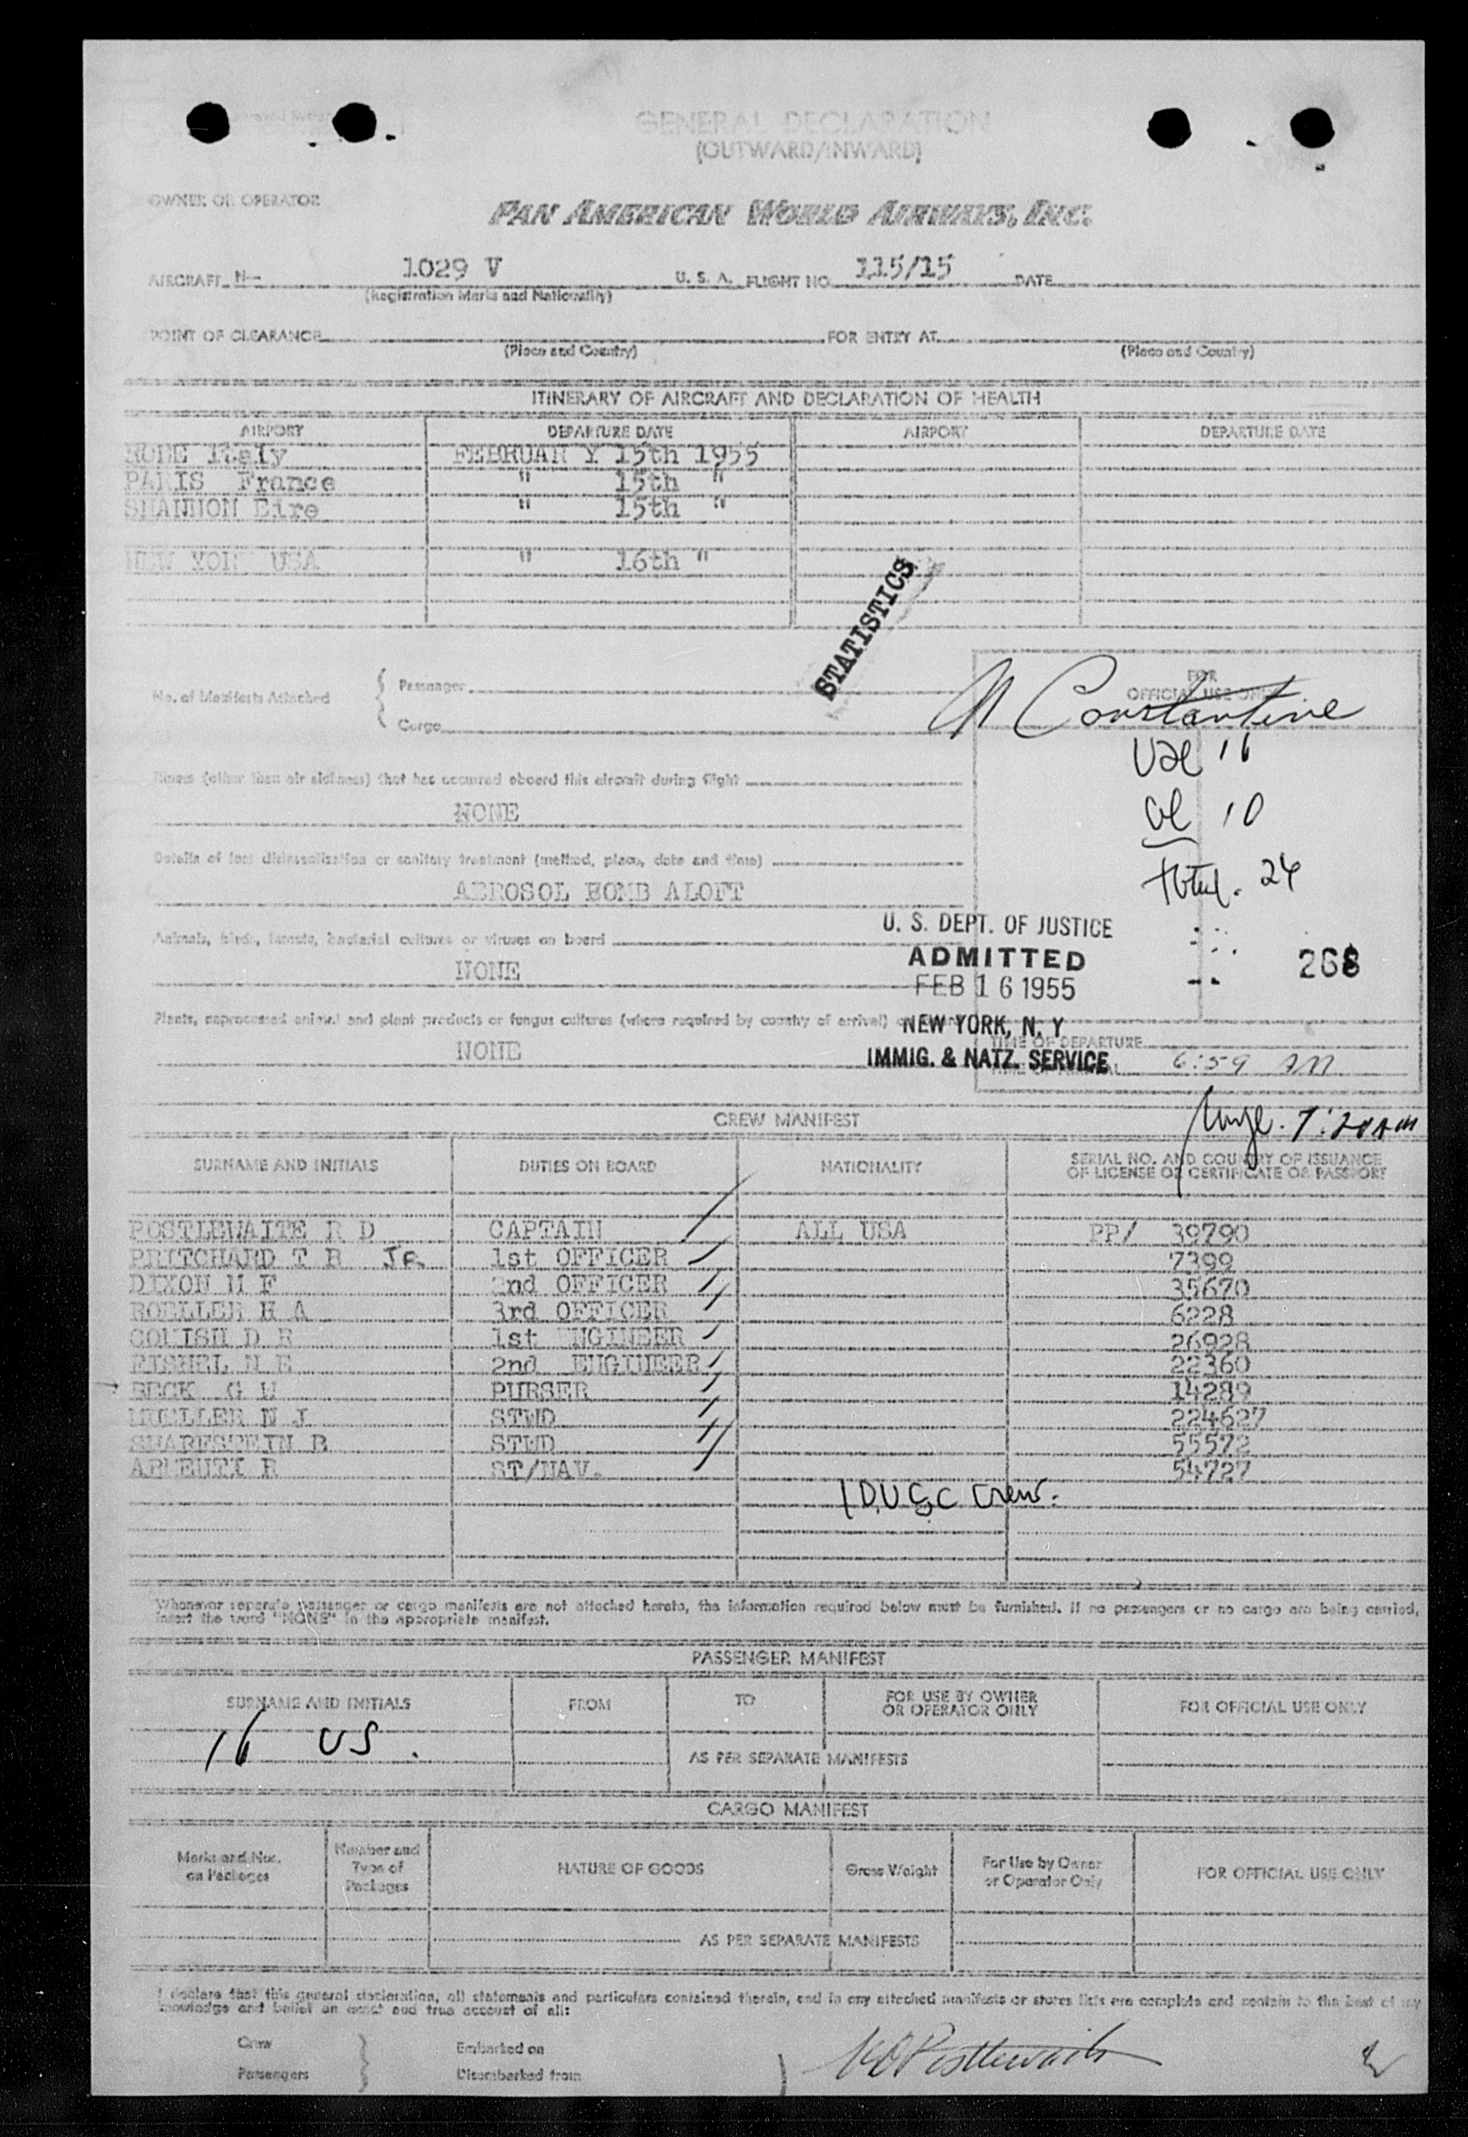 GENERAL DECLARATION
(OUTWARD/INWARD)
OWNER OR OPERATOR
PAN AMERICAN WORLD AIRWAYS, INC.
AIRCRAFT N- 1029 V U. S. A. FLIGHT NO. 115/15 DATE
(Registration Marks and Nationality)
POINT OF CLEARANCE FOR ENTRY AT
(Place and Country) (Place and Country)
ITINERARY OF AIRCRAFT AND DECLARATION OF HEALTH
AIRPORT DEPARTURE DATE AIRPORT DEPARTURE DATE
ROME Italy FEBRUAR Y 15th 1955
PARIS France " 15th "
SHANNON Eire " 15th "
NEW YOR USA " 16th "
STATISTICS
FOR
OFFICIAL USE ONLY
No. of Manifests Attached { Passenger
Cargo
Constantine
Illness (other than air sickness) that has occurred aboard this aircraft during flight
NONE
16
10
Details of last disinsectization or sanitary treatment (method, place, date and time)
AEROSOL BOMB ALOFT
Total. 24
Animals, birds, insects, bacterial cultures or viruses on board
NONE
U. S. DEPT. OF JUSTICE
ADMITTED
FEB 16 1955
NEW YORK, N. Y
IMMIG. & NATZ. SERVICE
268
Plants, unprocessed animal and plant products or fungus cultures (where required by country of arrival)
NONE
TIME OF DEPARTURE
6:59 AM
CREW MANIFEST
SURNAME AND INITIALS DUTIES ON BOARD NATIONALITY SERIAL NO. AND COUNTRY OF ISSUANCE
OF LICENSE OR CERTIFICATE OR PASSPORT
POSTLEWAITE R D CAPTAIN ALL USA PP/ 39790
PRITCHARD T B JR. 1st OFFICER 7399
DIXON M F 2nd OFFICER 35670
ROELLER H A 3rd OFFICER 6228
CORNISH D R 1st ENGINEER 26928
FISHEL N E 2nd ENGINEER 22360
BECK G W PURSER 14289
MUELLER N J STWD 224627
SHARFSTEIN B STWD 55572
R ST/NAV. 54727
Crew.
Whenever separate passenger or cargo manifests are not attached hereto, the information required below must be furnished. If no passengers or no cargo are being carried,
insert the word "NONE" in the appropriate manifest.
PASSENGER MANIFEST
SURNAME AND INITIALS FROM TO FOR USE BY OWNER
OR OPERATOR ONLY FOR OFFICIAL USE ONLY
16 US.
AS PER SEPARATE MANIFESTS
CARGO MANIFEST
Marks and Nos.
on Packages Number and
Type of
Packages NATURE OF GOODS Gross Weight For Use by Owner
or Operator Only FOR OFFICIAL USE ONLY
AS PER SEPARATE MANIFESTS
I declare that this general declaration, all statements and particulars contained therein, and in any attached manifests or stores lists are complete and contain to the best of my
knowledge and belief an exact and true account of all:
Crew Embarked on
Passengers Disembarked from
R D Postlewaite